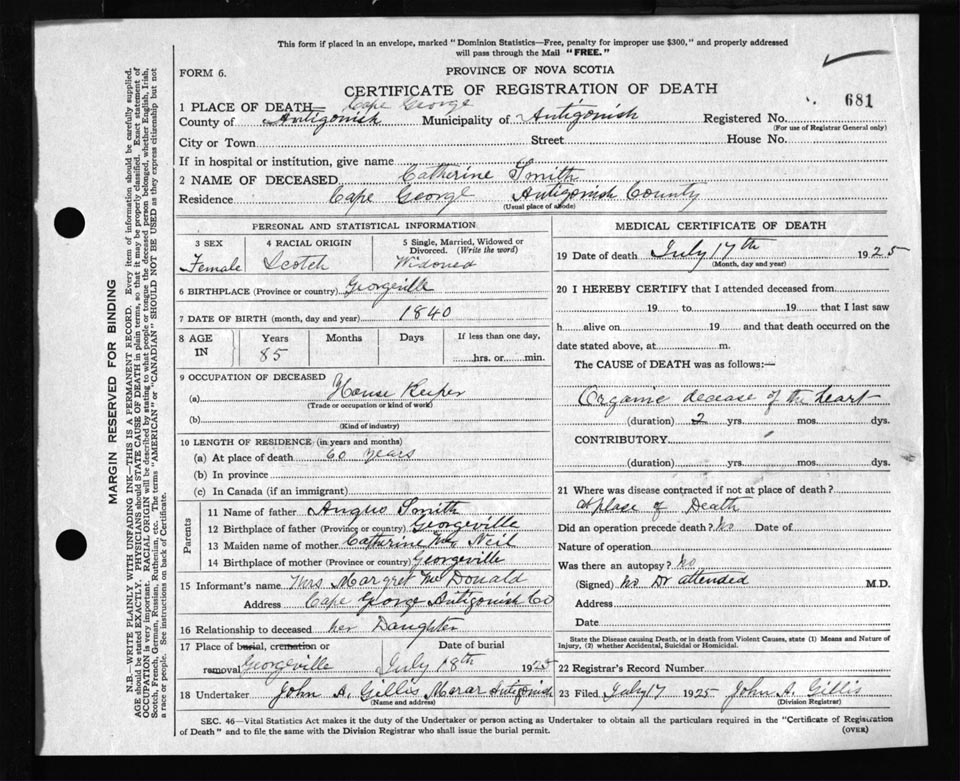 This form if placed in an envelope, marked "Dominion Statistics—Free, penalty for improper use $300," and properly addressed
will pass through the Mail "FREE."
FORM 6.
PROVINCE OF NOVA SCOTIA
CERTIFICATE OF REGISTRATION OF DEATH
681
1 PLACE OF DEATH— Cape George
County of Antigonish Municipality of Antigonish Registered No.
(For use of Registrar General only)
City or Town Street House No.
If in hospital or institution, give name
2 NAME OF DECEASED Catherine Smith
Residence Cape George Antigonish County
(Usual place of abode)
PERSONAL AND STATISTICAL INFORMATION
3 SEX 4 RACIAL ORIGIN 5 Single, Married, Widowed or
Divorced. (Write the word)
Female Scotch Widowed
6 BIRTHPLACE (Province or country) Georgeville
7 DATE OF BIRTH (month, day and year) 1840
8 AGE Years Months Days If less than one day,
IN 85 hrs. or min.
9 OCCUPATION OF DECEASED
(a) House Keeper
(Trade or occupation or kind of work)
(b)
(Kind of industry)
10 LENGTH OF RESIDENCE (in years and months)
(a) At place of death 60 years
(b) In province
(c) In Canada (if an immigrant)
Parents
11 Name of father Angus Smith
12 Birthplace of father (Province or country) Georgeville
13 Maiden name of mother Catherine Mc Neil
14 Birthplace of mother (Province or country) Georgeville
15 Informant's name Mrs Margret Mc Donald
Address Cape George Antigonish Co
16 Relationship to deceased her Daughter
17 Place of burial, cremation or Date of burial
removal Georgeville July 18th 1925
18 Undertaker John A. Gillis Morar Antigonish
(Name and address)
MEDICAL CERTIFICATE OF DEATH
19 Date of death July 17th 1925
(Month, day and year)
20 I HEREBY CERTIFY that I attended deceased from
19 to 19 that I last saw
h alive on 19 and that death occurred on the
date stated above, at m.
The CAUSE of DEATH was as follows:—
Organic decease of the heart
(duration) 2 yrs. mos. dys.
CONTRIBUTORY
(duration) yrs. mos. dys.
21 Where was disease contracted if not at place of death?
at plase of Death
Did an operation precede death? No Date of
Nature of operation
Was there an autopsy? No
(Signed) No Dr attended M.D.
Address
Date
State the Disease causing Death, or in death from Violent Causes, state (1) Means and Nature of
Injury, (2) whether Accidental, Suicidal or Homicidal.
22 Registrar's Record Number
23 Filed July 17 1925 John A. Gillis
(Division Registrar)
SEC. 46—Vital Statistics Act makes it the duty of the Undertaker or person acting as Undertaker to obtain all the particulars required in the "Certificate of Registration
of Death" and to file the same with the Division Registrar who shall issue the burial permit. (OVER)
MARGIN RESERVED FOR BINDING
N.B.—WRITE PLAINLY WITH UNFADING INK—THIS IS A PERMANENT RECORD. Every item of information should be carefully supplied.
AGE should be stated EXACTLY. PHYSICIANS should STATE CAUSE OF DEATH in plain terms, so that it may be properly classified. Exact statement of
OCCUPATION is very important. RACIAL ORIGIN will be described by stating to what people or tongue the deceased person belonged, whether English, Irish,
Scotch, French, German, Russian, Ruthenian, etc. The terms "AMERICAN" or "CANADIAN" SHOULD NOT BE USED as they express citizenship but not
a race or people. See instructions on back of Certificate.